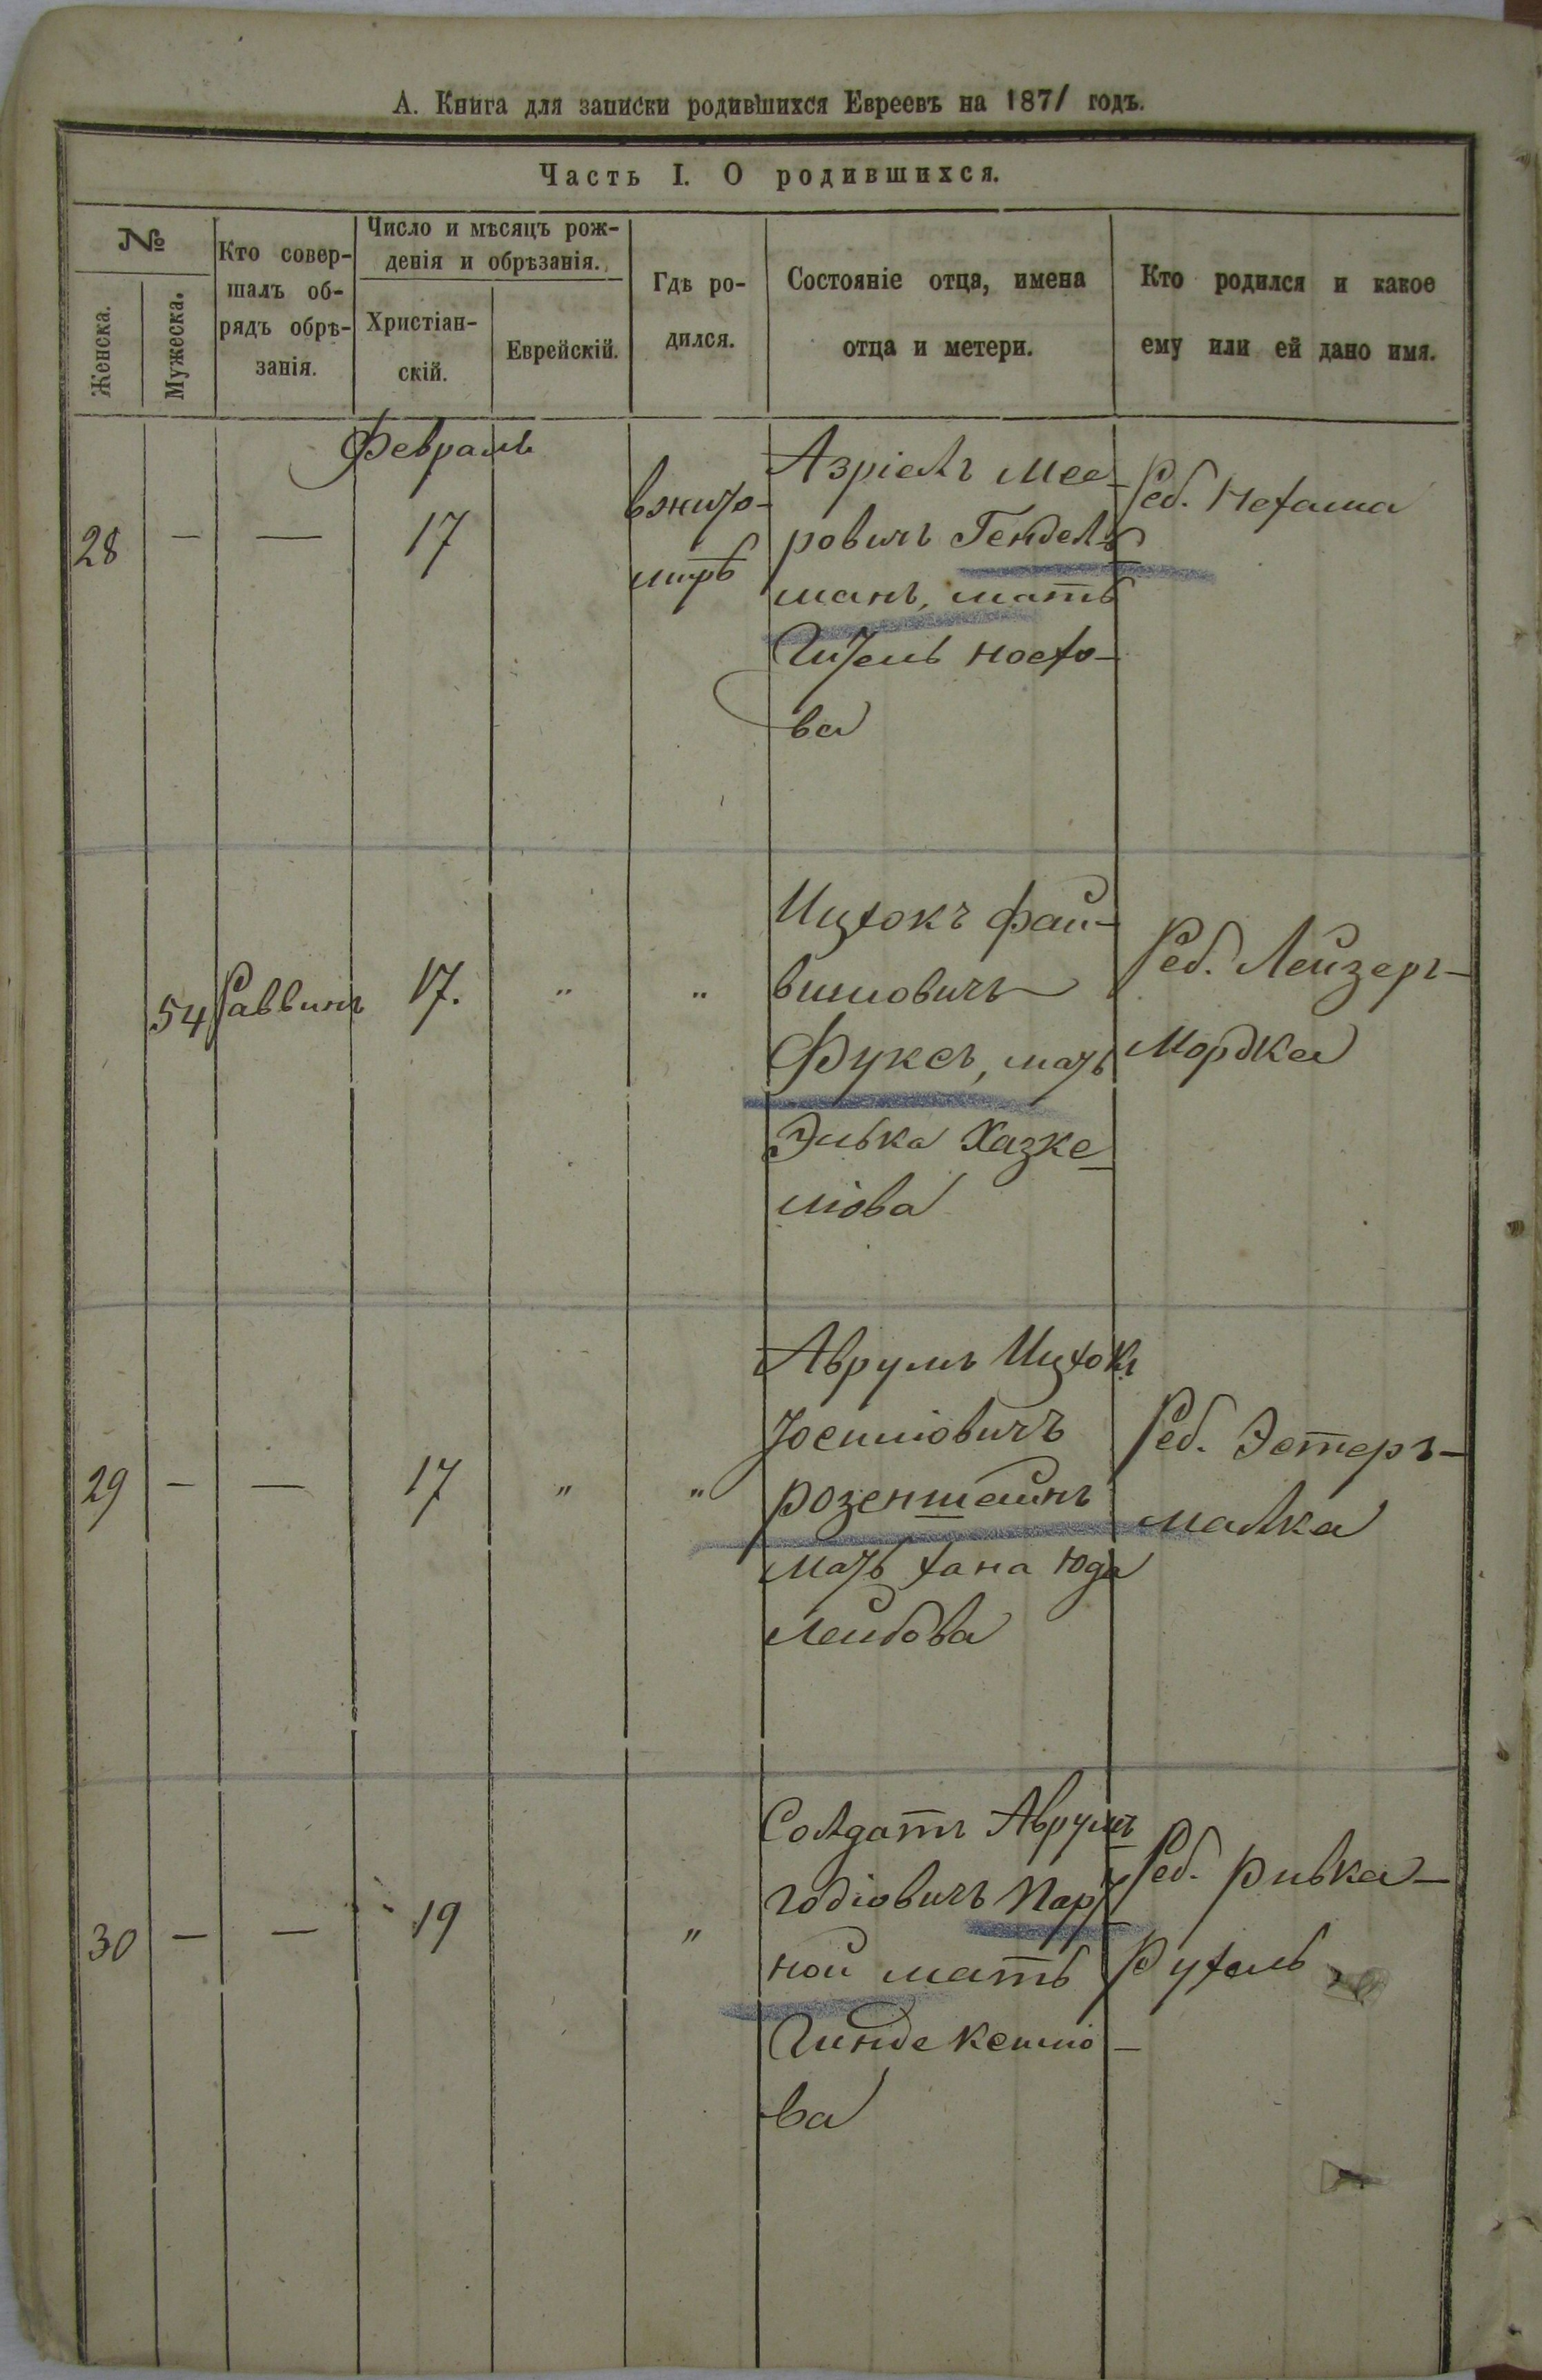 А. Книга для записки родившихся Евреевъ на 1871 годъ.
Часть I. О родившихся.
№
Женска.
Мужеска.
Кто совер-
шалъ об-
рядъ обрѣ-
занія.
Число и мѣсяцъ рож-
денія и обрѣзанія.
Христіан-
скій.
Еврейскій.
Гдѣ ро-
дился.
Состояніе отца, имена
отца и метери.
Кто родился и какое
ему или ей дано имя.
Февраль
28
—
—
17
вжито-
мирѣ
Азріелъ Мее-
ровичъ Гендель-
манъ, мать
Гитель
ва
Реб. Нехама
54
Раввинъ
17.
"
"
Ицхокъ Фай-
вишовичъ
Фуксъ, мать
Элька Хазке-
ліова
Реб. Лейзеръ-
Мордка
29
—
—
17
"
"
Аврумъ Ицхокъ
Іосиповичъ
розенштейнъ
мать хана юда
Лейбова
Реб. Эстеръ-
малка
30
—
—
19
"
Солдатъ Аврумъ
ной мать
Гинде
ва
Реб. ривка-
Рухель